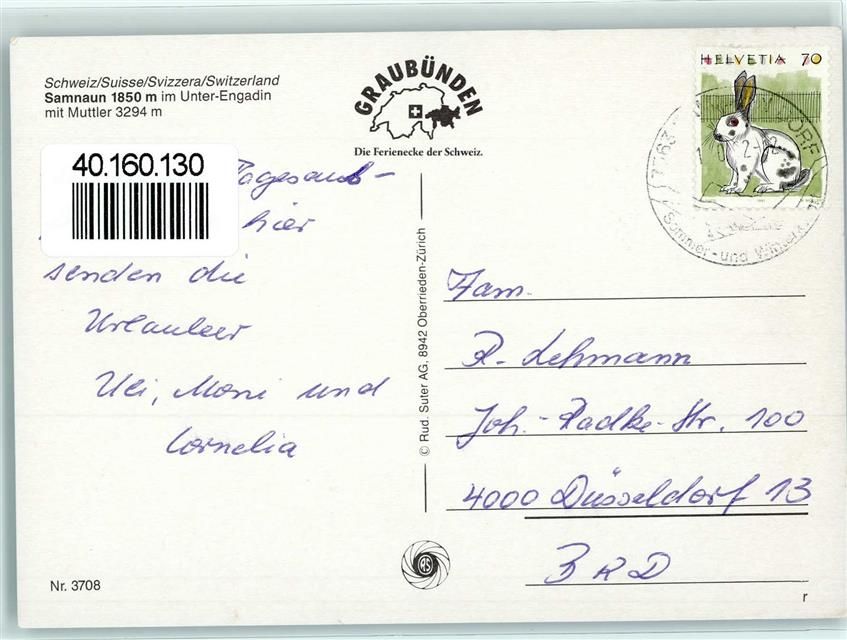 Schweiz/Suisse/Svizzera/Switzerland
Samnaun 1850 m im Unter-Engadin
mit Muttler 3294 m
GRAUBÜNDEN
Die Ferienecke der Schweiz.
HELVETIA 70
7563
DORF
Sommer- und
40.160.130
Tagesaus-
hier
senden die
Urlauber
Uli, Moni und
Cornelia
© Rud. Suter AG, 8942 Oberrieden-Zürich
Fam.
R. Lehmann
Joh.-Radke-Str. 100
4000 Düsseldorf 13
BRD
RS
Nr. 3708
r